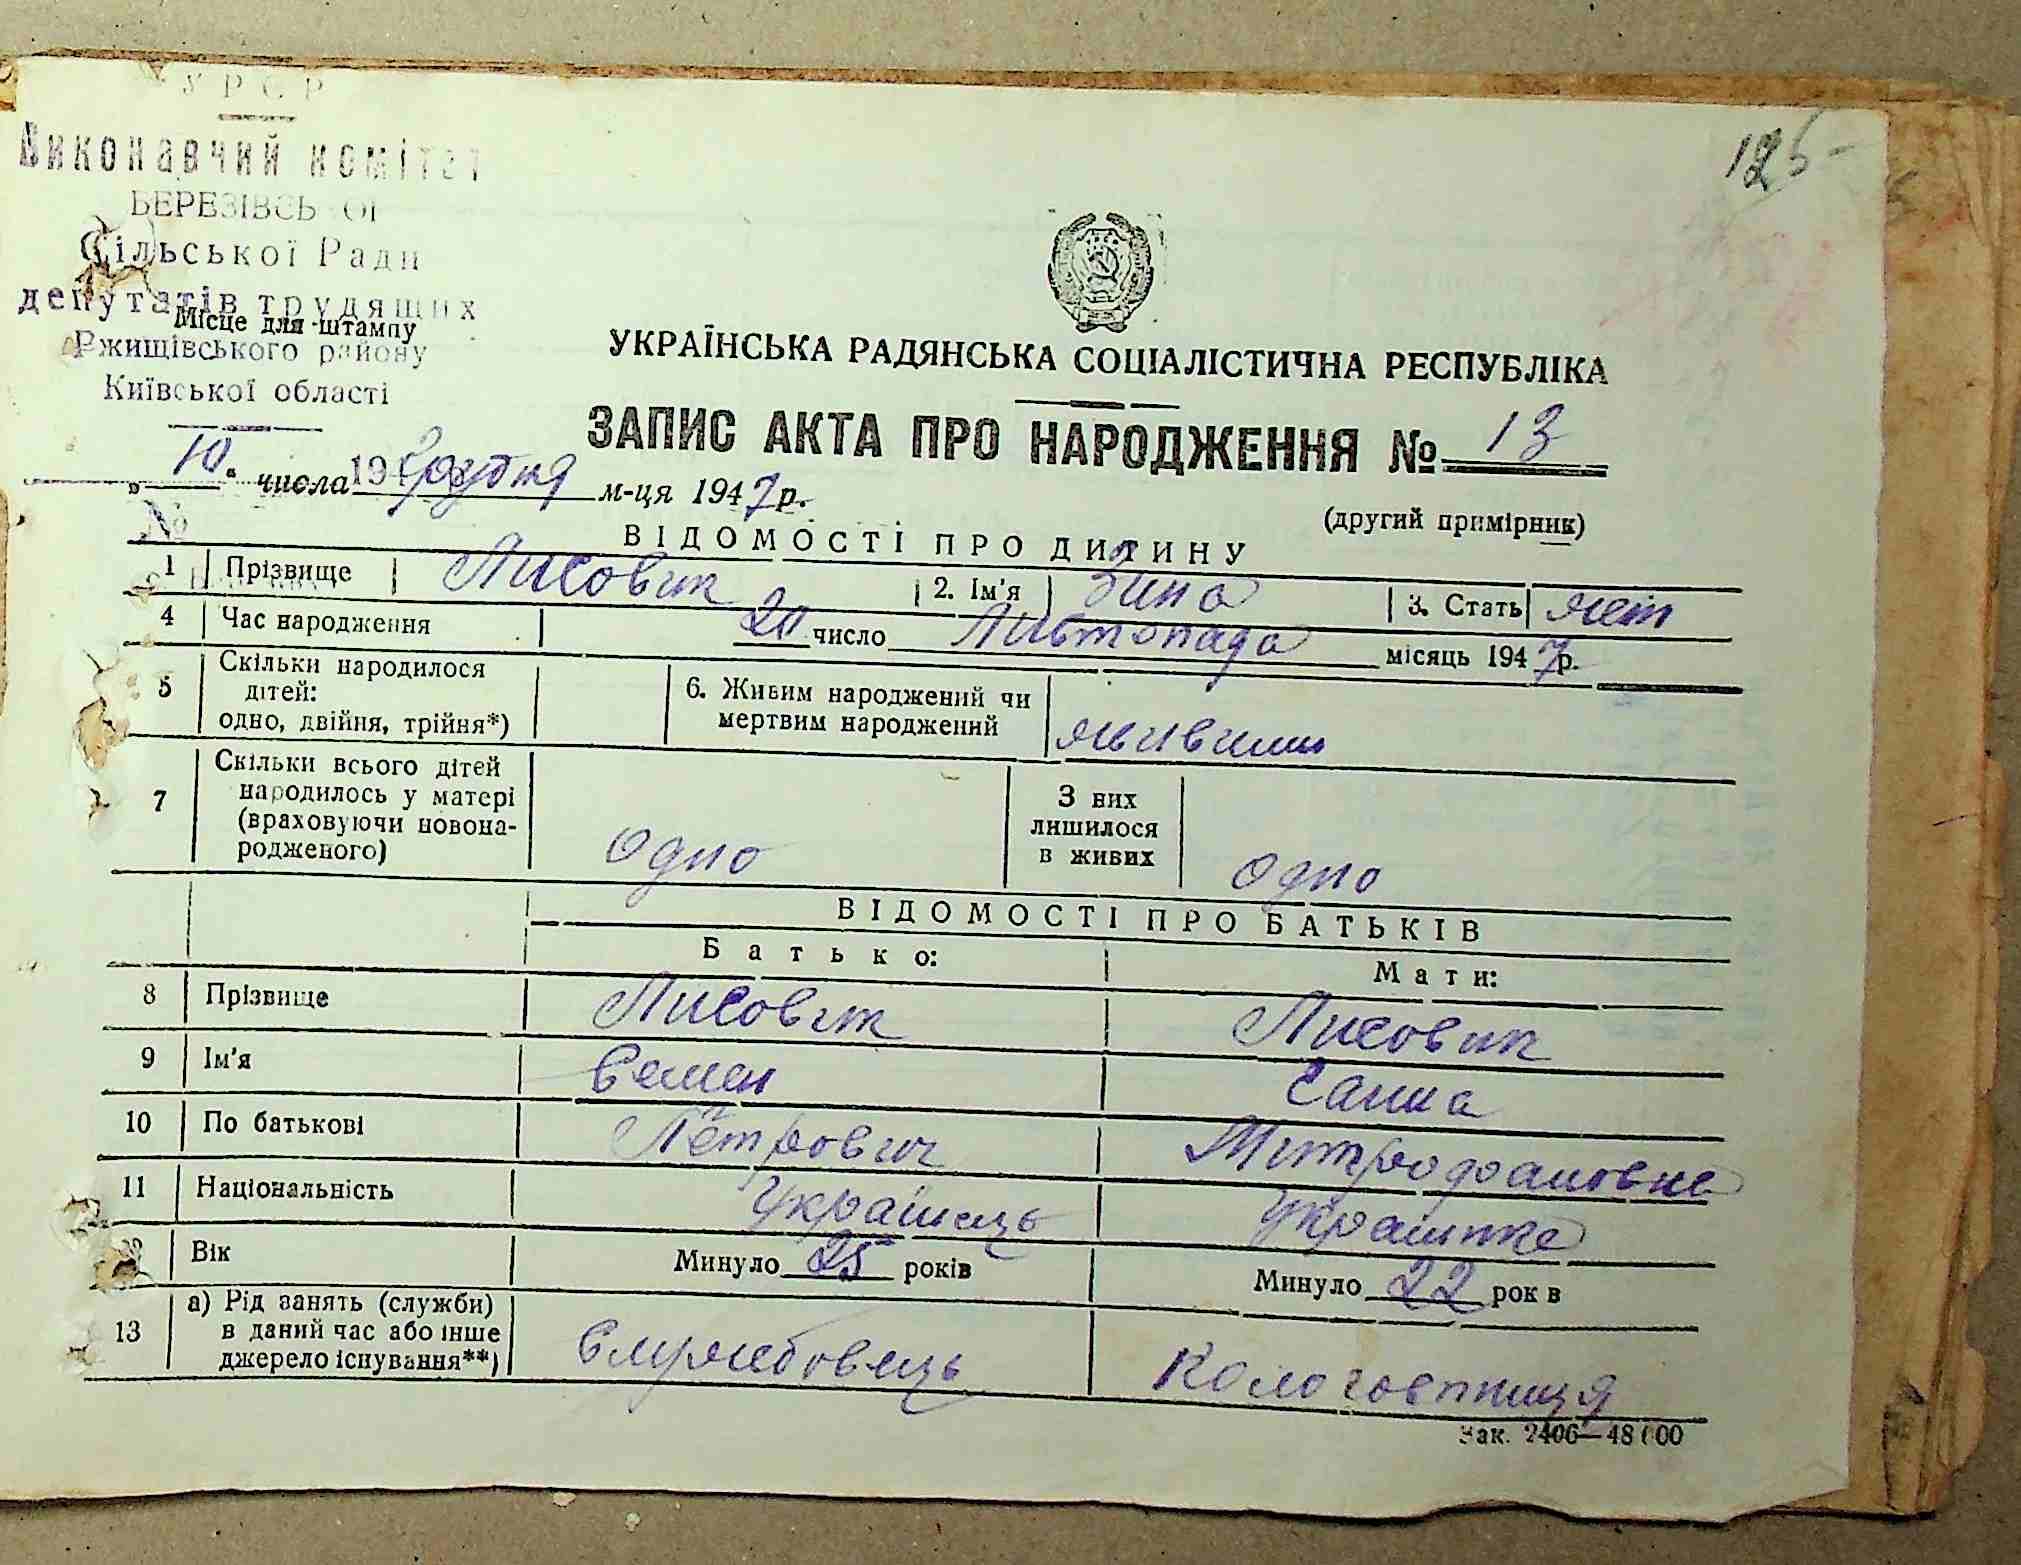 УРСР
Виконавчий комітет
БЕРЕЗІВСЬКОЇ
Сільської Ради
депутатів трудящих
Місце для штампу
Ржищівського району
Київської області
125
УКРАЇНСЬКА РАДЯНСЬКА СОЦІАЛІСТИЧНА РЕСПУБЛІКА
ЗАПИС АКТА ПРО НАРОДЖЕННЯ № 13
„10" числа 194 грудня м-ця 1947 р.
№
(другий примірник)
ВІДОМОСТІ ПРО ДИТИНУ
1 Прізвище Лисовик 2. Ім'я Зина 3. Стать жін
4 Час народження 20 число Листопада місяць 1947 р.
5 Скільки народилося дітей: одно, двійня, трійня*) 6. Живим народжений чи мертвим народжений живими
7 Скільки всього дітей народилось у матері (враховуючи новонародженого) одно З них лишилося в живих одно
ВІДОМОСТІ ПРО БАТЬКІВ
Батько: Мати:
8 Прізвище Лисовик Лисовик
9 Ім'я Семен Ганна
10 По батькові Петрович Митрофановна
11 Національність Українець Українка
12 Вік Минуло 25 років Минуло 22 рок в
13 а) Рід занять (служби) в даний час або інше джерело існування**) Службовець Колгоспниця
Зак. 2406—48000